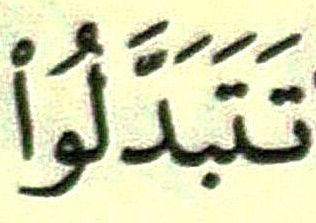 تَتَبَدَّلُوا۟